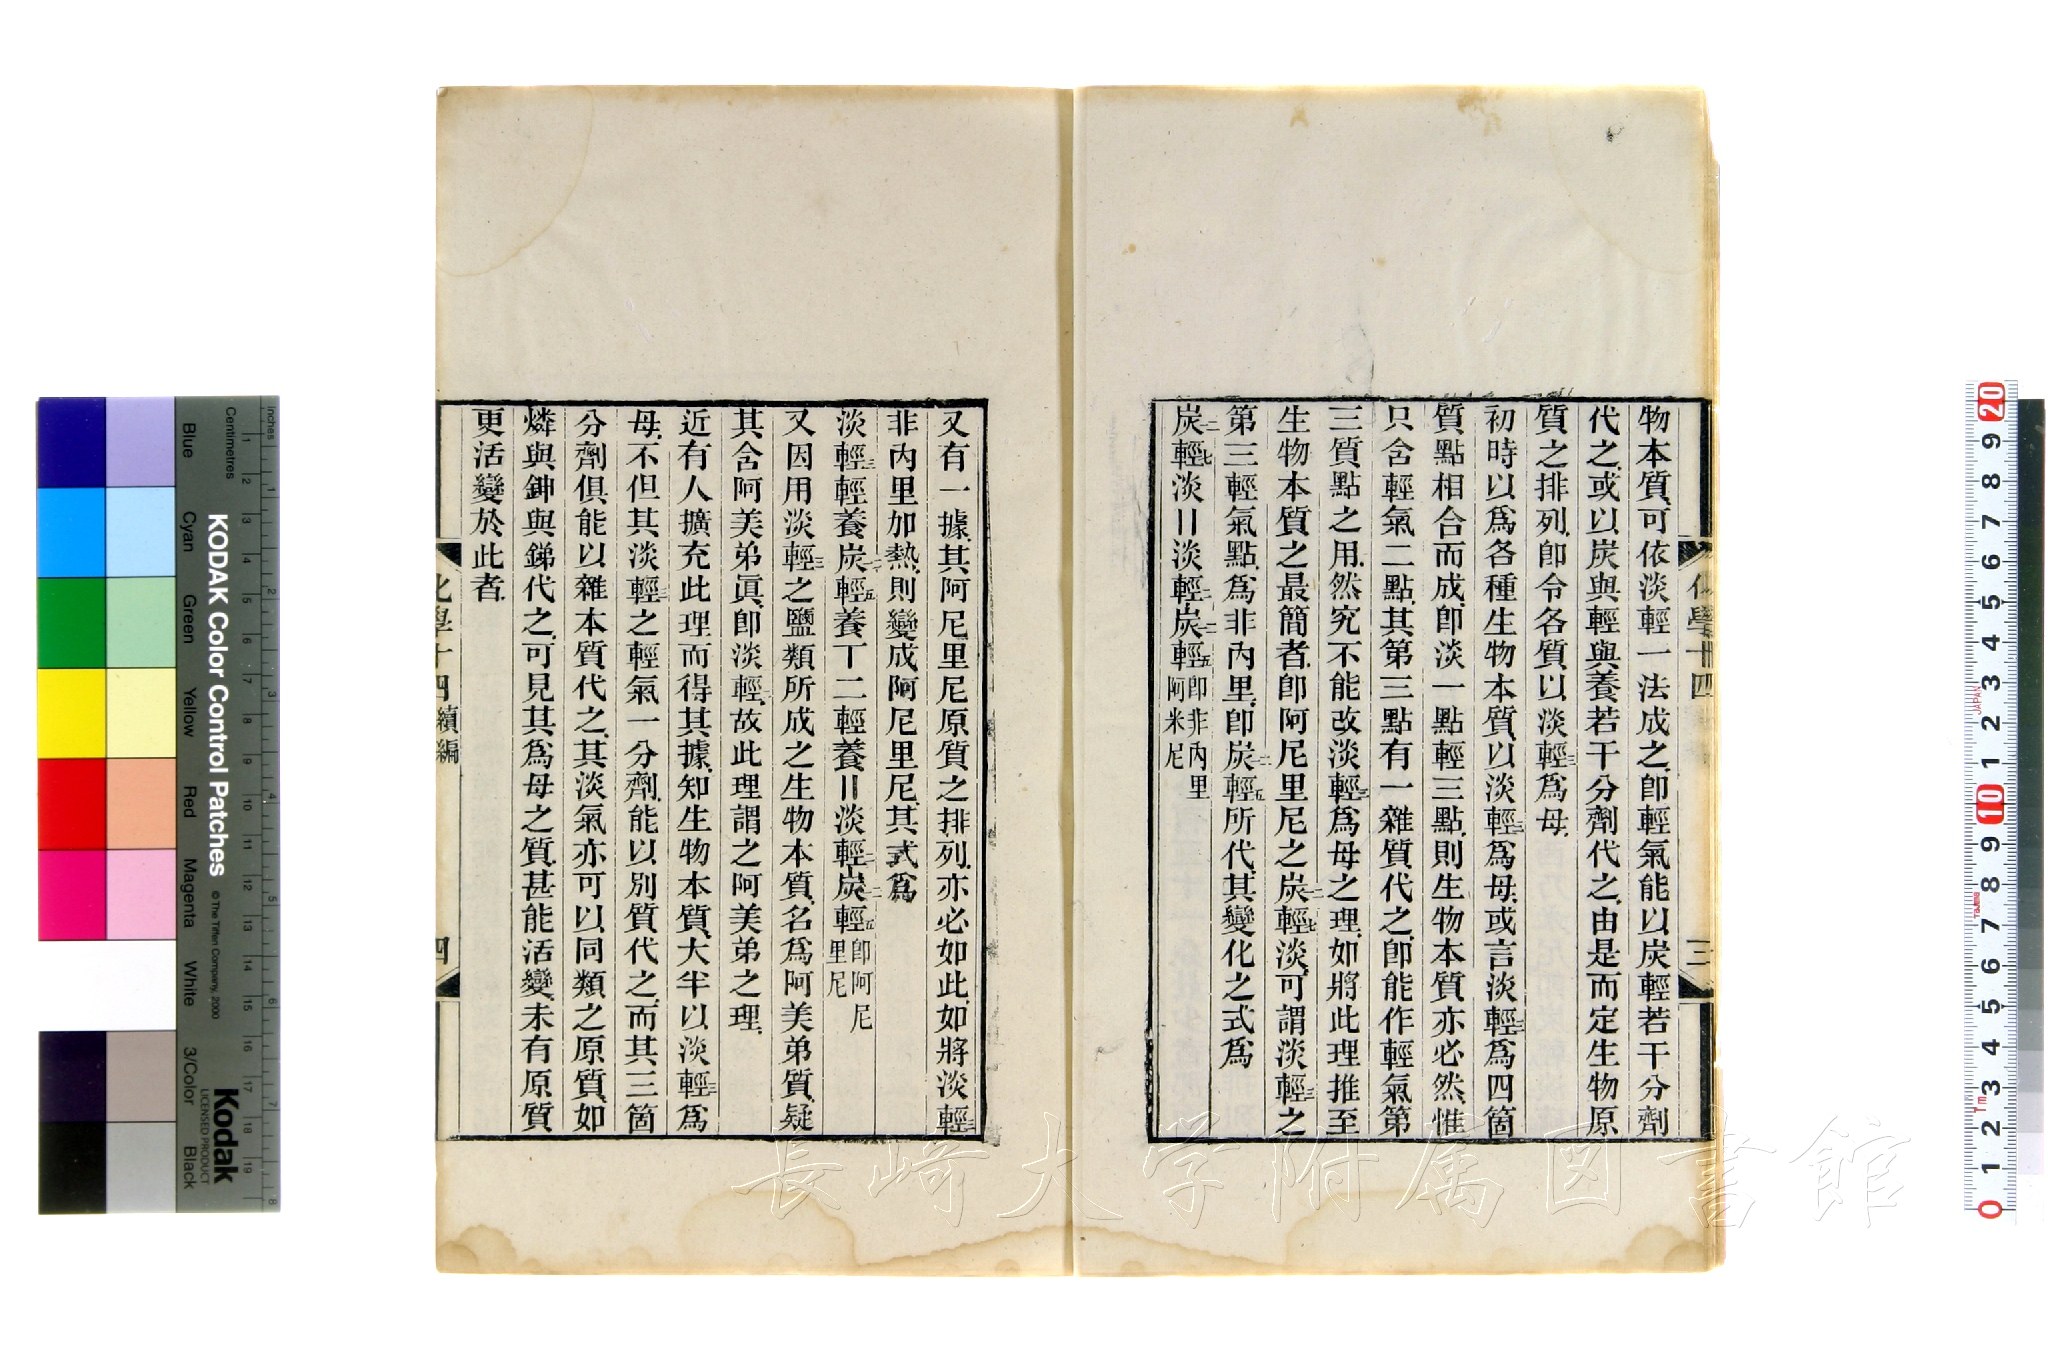 物本質、可依淡輕一法成之、卽輕氣能以炭輕若干分劑
代之、或以炭與輕與養若干分劑代之、由是而定生物原
質之排列、卽令各質以淡輕三爲母、
初時以爲各種生物本質、以淡輕三爲母、或言淡輕三爲四箇
質點相合而成、卽淡一點輕三點、則生物本質亦必然、惟
只含輕氣二點、其第三點有一雜質代之、卽能作輕氣第
三質點之用、然究不能改淡輕三爲母之理、如將此理推至
生物本質之最簡者、卽阿尼里尼之炭十二輕七淡、可謂淡輕三之
第三輕氣點、爲非內里、卽炭十二輕五所代、其變化之式爲
炭十二輕七淡〢淡輕二炭十二輕五卽非內里阿米尼
化學十四
三
又有一據、其阿尼里尼原質之排列、亦必如此、如將淡輕三
非內里加熱、則變成阿尼里尼、其式爲
淡輕三輕養炭十二輕五養丅二輕養〢淡輕二炭十二輕五卽阿尼里尼
又因用淡輕三之鹽類所成之生物本質、名爲阿美弟質、疑
其含阿美弟眞、卽淡輕二、故此理謂之阿美弟之理、
近有人擴充此理而得其據、知生物本質、大半以淡輕三爲
母、不但其淡輕三之輕氣一分劑、能以別質代之、而其三箇
分劑俱能以雜本質代之、其淡氣亦可以同類之原質、如
燐與鉮與銻代之、可見其爲母之質、甚能活變、未有原質
更活變於此者、
化學十四續編
四
KODAK Color Control Patches
© The Tiffen Company, 2000
Kodak
LICENSED PRODUCT
Inches
Centimetres
Blue
Cyan
Green
Yellow
Red
Magenta
White
3/Color
Black
JAPAN
Tajima
長崎大学附属図書館